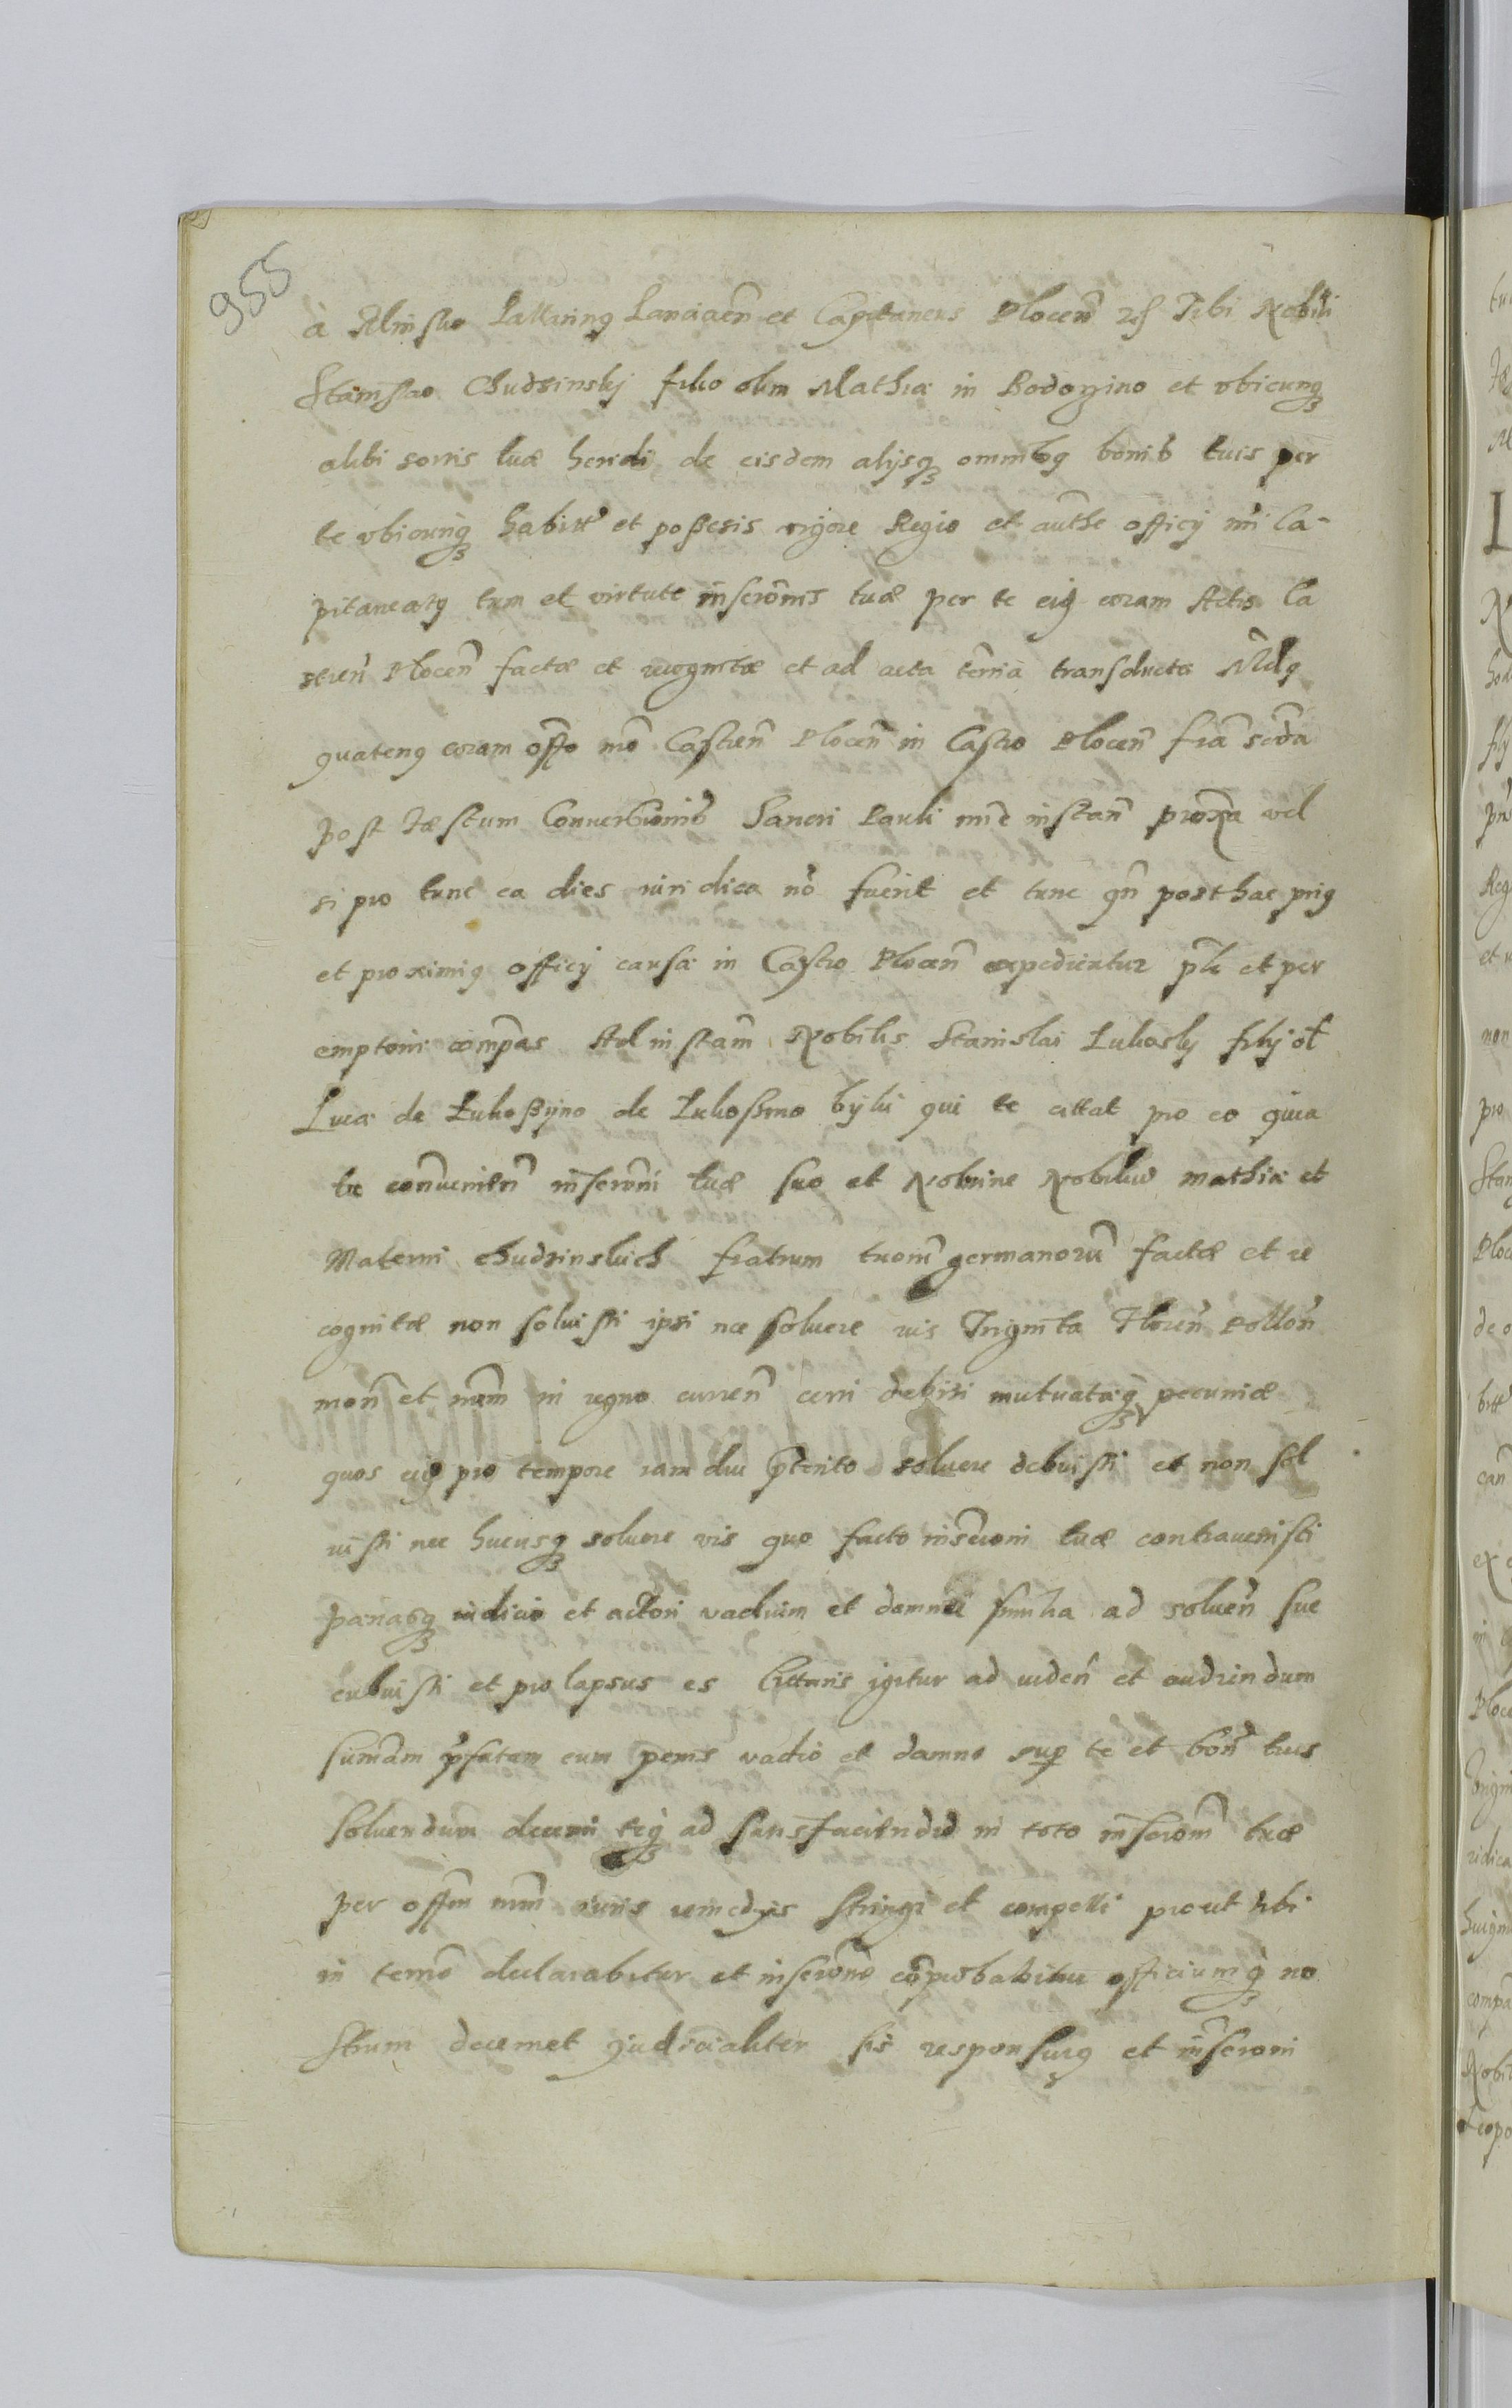 955
à Minsko Pallatinus Lanciacień et Capitaneus Ploceń Tibi Nobili
Stanislao Chudzinsky filio olim Mathiæ in Bodozino et vbicunq
alibi sortis tuæ heredi de eisdem alijsq omnibq bonis tuis per
te vbicunq habitt et possesis vigore Regio et authe officy mi Ca-
pitanealy tum et virtute inscrōnis tuæ per te eiq coram Actis Ca
streń Ploceń factæ et recognitæ et ad acta transductæ Mdq
quatenq coram offo mō Castreń Ploceń in Castro Ploceń fria scda
post Fæstum Conuersionis Sancti Pauli instań proxa vel
si pro tunc ea dies iuridica nō fuerit et tunc qn posthac priq
et proximiq officy causæ in Castro Ploceń expedientur plr et per
emptorie compas Ad instam Nobilis Stanislai Lukosky filij ol
Lucæ de Lukoßyno de Lukoßino byki qui te cittat pro eo quia
tu conuenień inscrōni tuæ suo et Nomine Nobiliū Mathiæ et
Materni Chudzinskich fratrum tuorū germanorū factæ et re
cognitæ non soluisti ipsi nec soluere vis Triginta Floreń Polloń
moń et num in regno curreń certi debiti mutuatæq pecuniæ
quos eiq pro tempore iam diu pterito soluere debuisti et non sol
uisti nec hucusq soluere vis quo facto inscrōni tuæ contrauenisti
pænasq iudicio et actori vadium et damna simila ad solueń suc
cubuisti et prolapsus es Cittaris igitur ad videń et audiendum
sumam pfatam cum penis vadio et damno sup te et boń tuis
soluendum decerni teq ad satisfaciendū in toto inscrōni tuæ
per offm nrm iuris remedys stringi et compelli prout tibi
in termo declarabitur et inscrōne cōprobabitur officiumq no
strum decernet judicialiter sis responsurq et inscrōni